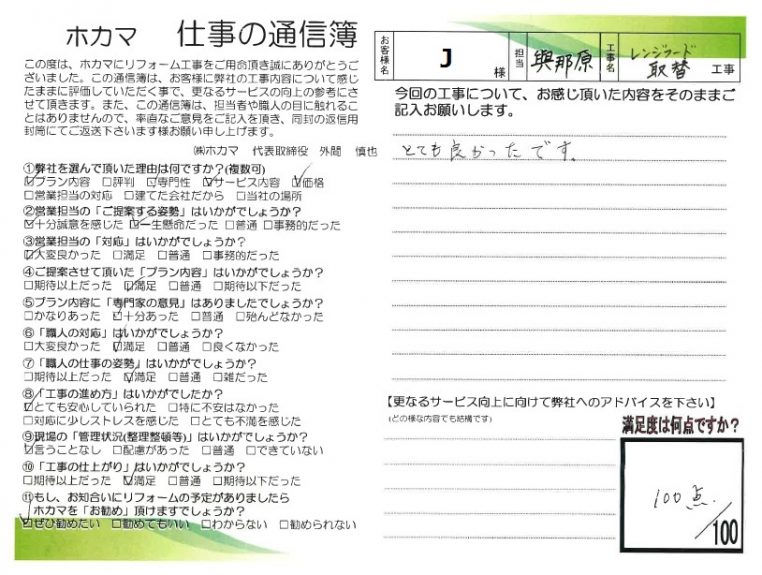 ホカマ 仕事の通信簿
この度は、ホカマにリフォーム工事をご用命頂き誠にありがとうご
ざいました。この通信簿は、お客様に弊社の工事内容について感じ
たままに評価していただく事で、更なるサービスの向上の参考にさ
せて頂きます。また、この通信簿は、担当者や職人の目に触れること
はありませんので、率直なご意見をご記入を頂き、同封の返信用
封筒にてご返送下さいます様お願い申し上げます。
㈱ホカマ 代表取締役 外間 愼也
①弊社を選んで頂いた理由は何ですか?(複数可)
☑プラン内容 □評判 ☑専門性 ☑サービス内容 ☑価格
□営業担当の対応 □建てた会社だから □当社の場所
②営業担当の「ご提案する姿勢」はいかがでしょうか?
☑十分誠意を感じた ☑一生懸命だった □普通 □事務的だった
③営業担当の「対応」はいかがでしょうか?
☑大変良かった □満足 □普通 □事務的だった
④ご提案させて頂いた「プラン内容」はいかがでしょうか?
□期待以上だった ☑満足 □普通 □期待以下だった
⑤プラン内容に「専門家の意見」はありましたでしょうか?
□かなりあった ☑十分あった □普通 □殆んどなかった
⑥「職人の対応」はいかがでしょうか?
□大変良かった ☑満足 □普通 □良くなかった
⑦「職人の仕事の姿勢」はいかがでしょうか?
□期待以上だった ☑満足 □普通 □雑だった
⑧「工事の進め方」はいかがでしたか?
☑とても安心していられた □特に不安はなかった
□対応に少しストレスを感じた □とても不満を感じた
⑨現場の「管理状況(整理整頓等)」はいかがでしょうか?
☑言うことなし □配慮があった □普通 □できていない
⑩「工事の仕上がり」はいかがでしょうか?
□期待以上だった ☑満足 □普通 □期待以下だった
⑪もし、お知合いにリフォームの予定がありましたら
ホカマを「お勧め」頂けますでしょうか?
☑ぜひ勧めたい □勧めてもいい □わからない □勧められない
お客様名 J 様 担当 與那原 工事名 レンジフード取替 工事
今回の工事について、お感じ頂いた内容をそのままご
記入お願いします。
とても良かったです。
【更なるサービス向上に向けて弊社へのアドバイスを下さい】
(どの様な内容でも結構です)
満足度は何点ですか?
100点
/100